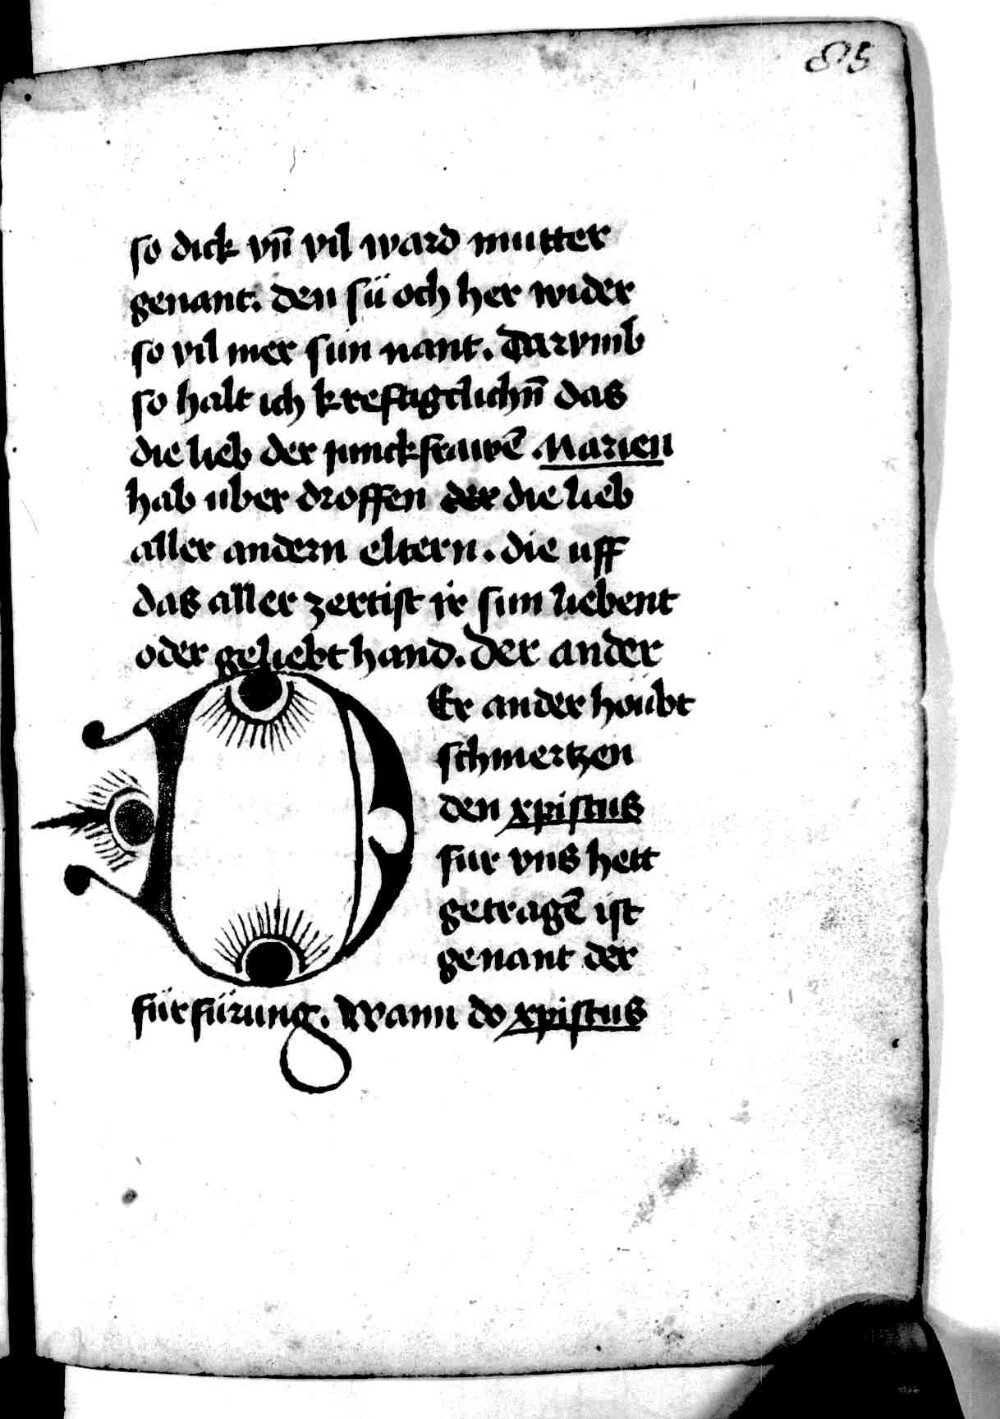 85
so dick vn̄ vil ward mutter
genant. den sü och her wider
so vil mer sun nant. Darvmb
so halt ich krefftigclichn̄ das
die lieb der junckfrawē Marien
hab uber droffen der die lieb
aller andern eltern. die uff
das aller zertist ir sun liebent
oder geliebt hand. Der ander
DEr ander houbt
schmertzen
den xpistus
fur vns hett
getragē ist
genant der
fürfürung. Wann do xpistus